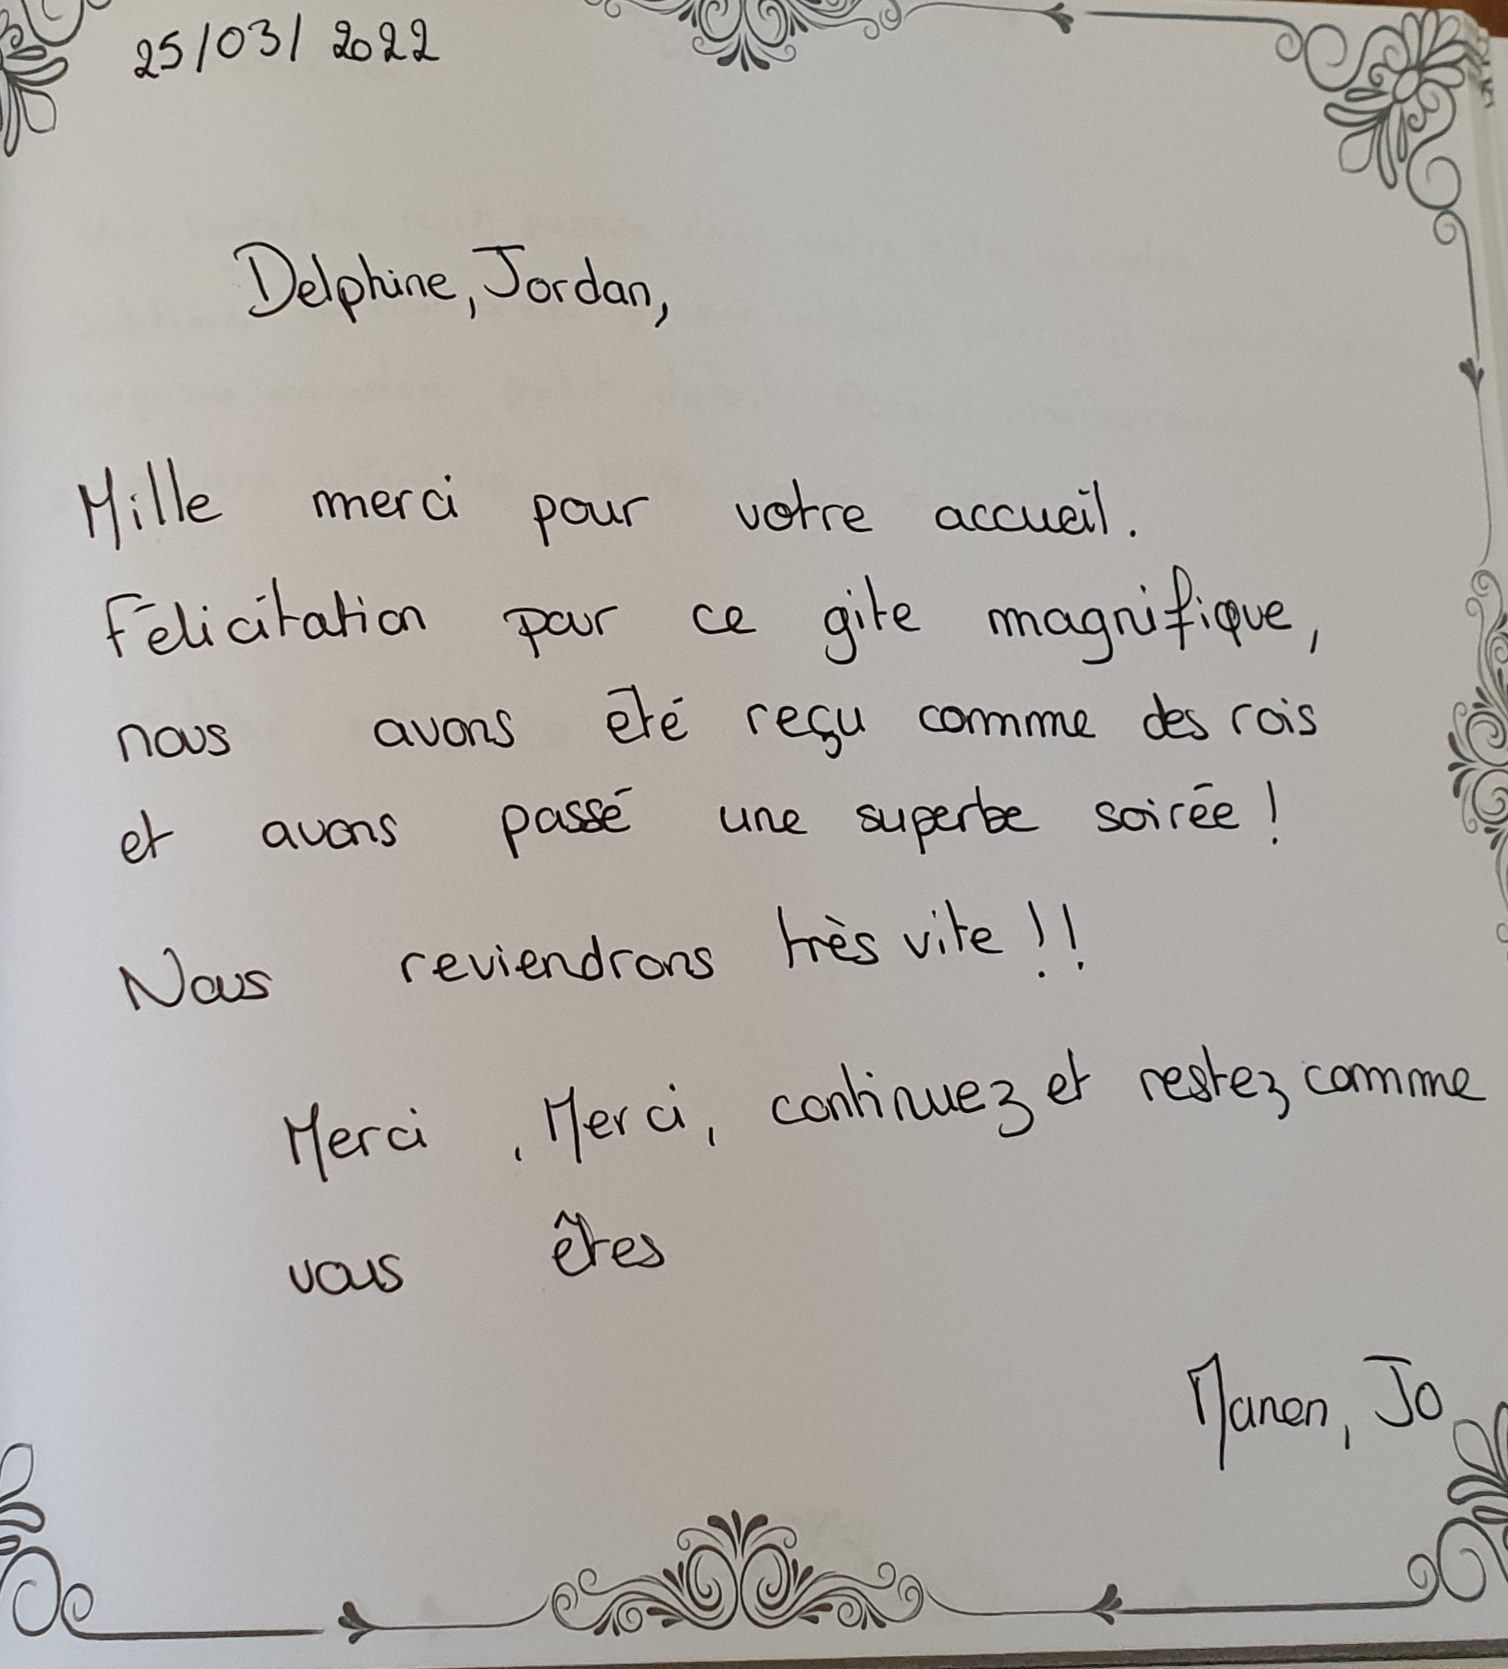 25/03/2022
Delphine, Jordan,
Mille merci pour votre accueil.
Félicitation pour ce gite magnifique,
nous avons été reçu comme des rois
et avons passé une superbe soirée !
Nous reviendrons très vite !!
Merci, Merci, continuez et restez comme
vous êtes
Manen, Jo